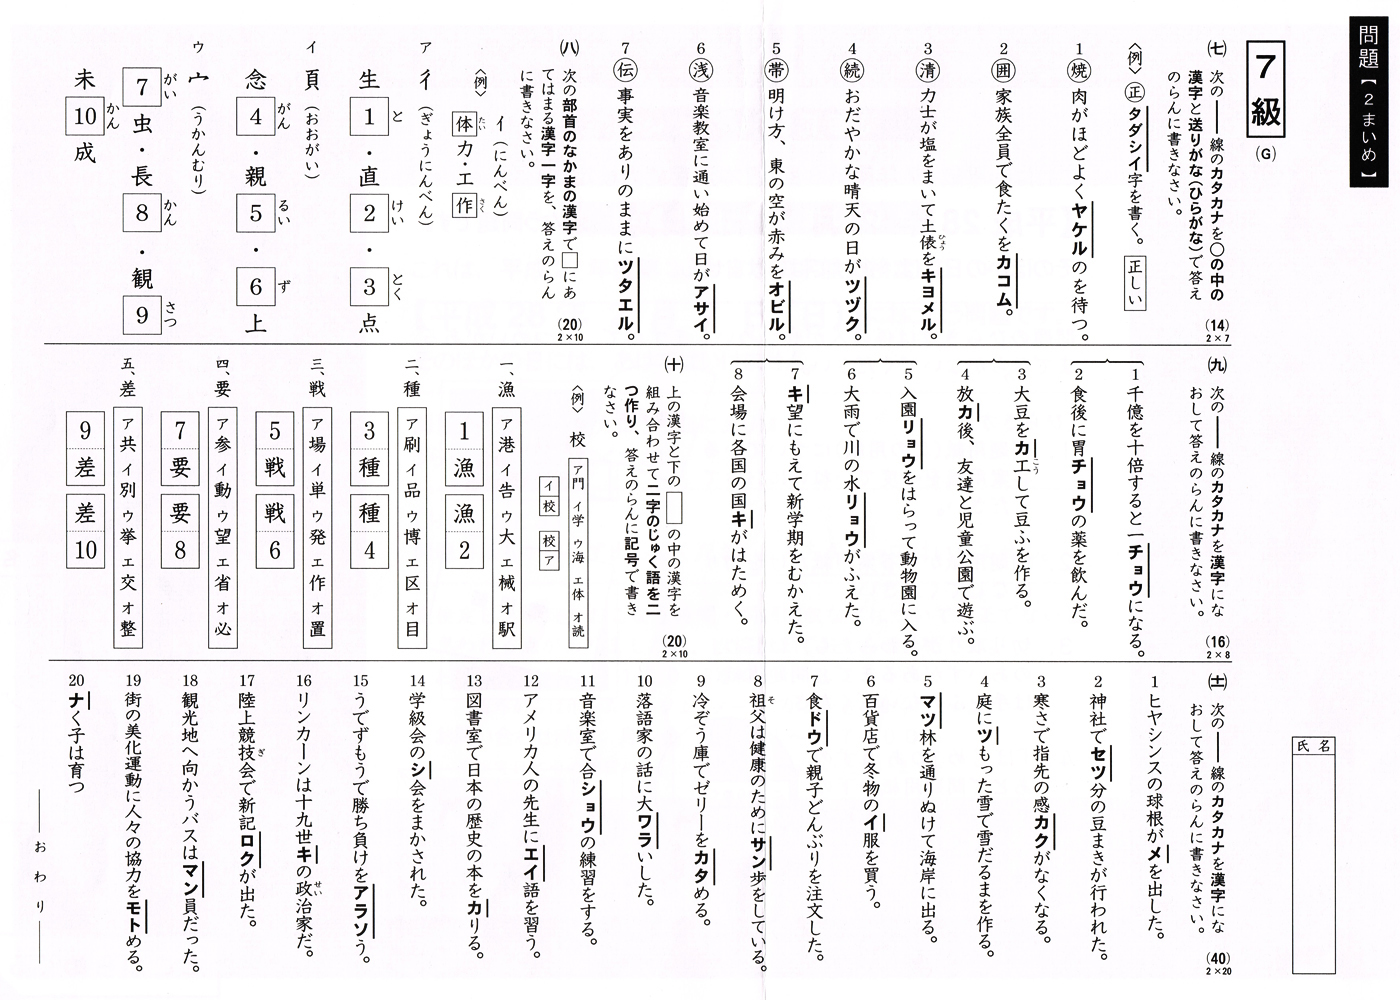 問題【2まいめ】
7級
(G)
氏名
㈦ 次の━━線のカタカナを○の中の
漢字と送りがな(ひらがな)で答え
のらんに書きなさい。
(14)
2×7
〈例〉 正 タダシイ字を書く。 正しい
1 焼 肉がほどよくヤケルのを待つ。
2 囲 家族全員で食たくをカコム。
3 清 力士が塩をまいて土俵をキヨメル。
ひょう
4 続 おだやかな晴天の日がツヅク。
5 帯 明け方、東の空が赤みをオビル。
6 浅 音楽教室に通い始めて日がアサイ。
7 伝 事実をありのままにツタエル。
㈧ 次の部首のなかまの漢字で□にあ
てはまる漢字一字を、答えのらん
に書きなさい。
(20)
2×10
〈例〉 イ(にんべん)
体力・工作
たい さく
ア 彳(ぎょうにんべん)
生1・直2・3点
と けい とく
イ 頁(おおがい)
念4・親5・6上
がん るい ず
ウ 宀(うかんむり)
7虫・長8・観9
がい かん さつ
未10成
かん
㈨ 次の━━線のカタカナを漢字にな
おして答えのらんに書きなさい。
(16)
2×8
1 千億を十倍すると一チョウになる。
2 食後に胃チョウの薬を飲んだ。
3 大豆をカ工して豆ふを作る。
こう
4 放カ後、友達と児童公園で遊ぶ。
5 入園リョウをはらって動物園に入る。
6 大雨で川の水リョウがふえた。
7 キ望にもえて新学期をむかえた。
8 会場に各国の国キがはためく。
㈩ 上の漢字と下の□の中の漢字を
組み合わせて二字のじゅく語を二
つ作り、答えのらんに記号で書き
なさい。
(20)
2×10
〈例〉 校 ア門 イ学 ウ海 エ体 オ読
イ校 校ア
一、漁 ア港 イ告 ウ大 エ械 オ駅
1漁 漁2
二、種 ア刷 イ品 ウ博 エ区 オ目
3種 種4
三、戦 ア場 イ単 ウ発 エ作 オ置
5戦 戦6
四、要 ア参 イ動 ウ望 エ省 オ必
7要 要8
五、差 ア共 イ別 ウ挙 エ交 オ整
9差 差10
(十一) 次の━━線のカタカナを漢字にな
おして答えのらんに書きなさい。
(40)
2×20
1 ヒヤシンスの球根がメを出した。
2 神社でセツ分の豆まきが行われた。
3 寒さで指先の感カクがなくなる。
4 庭にツもった雪で雪だるまを作る。
5 マツ林を通りぬけて海岸に出る。
6 百貨店で冬物のイ服を買う。
7 食ドウで親子どんぶりを注文した。
8 祖父は健康のためにサン歩をしている。
そ
9 冷ぞう庫でゼリーをカタめる。
10 落語家の話に大ワラいした。
11 音楽室で合ショウの練習をする。
12 アメリカ人の先生にエイ語を習う。
13 図書室で日本の歴史の本をカりる。
14 学級会のシ会をまかされた。
15 うでずもうで勝ち負けをアラソう。
16 リンカーンは十九世キの政治家だ。
せい
17 陸上競技会で新記ロクが出た。
ぎ
18 観光地へ向かうバスはマン員だった。
19 街の美化運動に人々の協力をモトめる。
20 ナく子は育つ
━━おわり━━